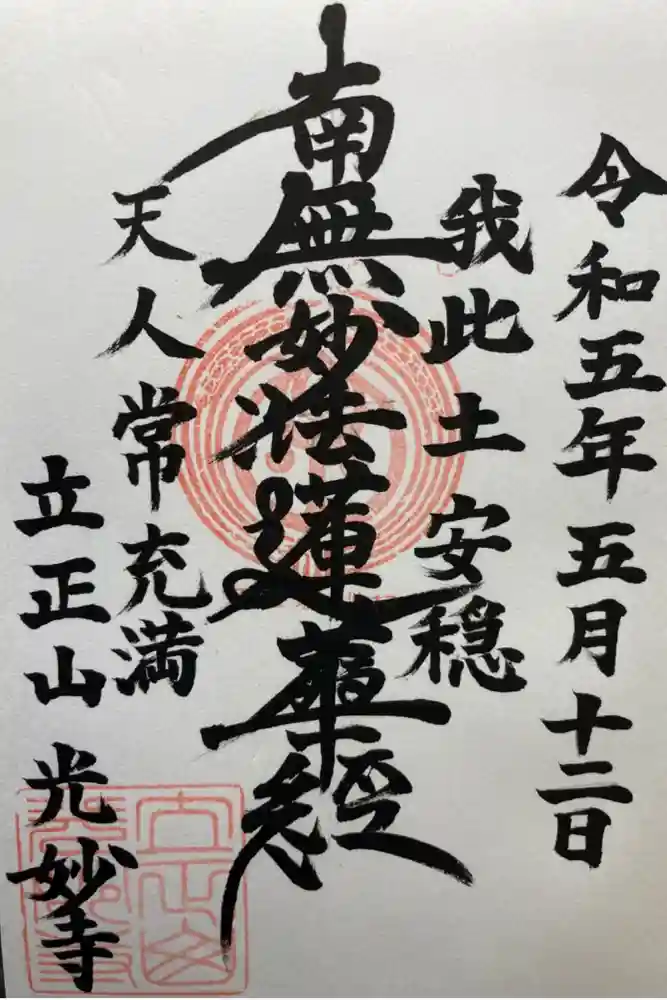 令和五年五月十二日
我此土安穏
南無妙法蓮華経
天人常充満
立正山光妙寺